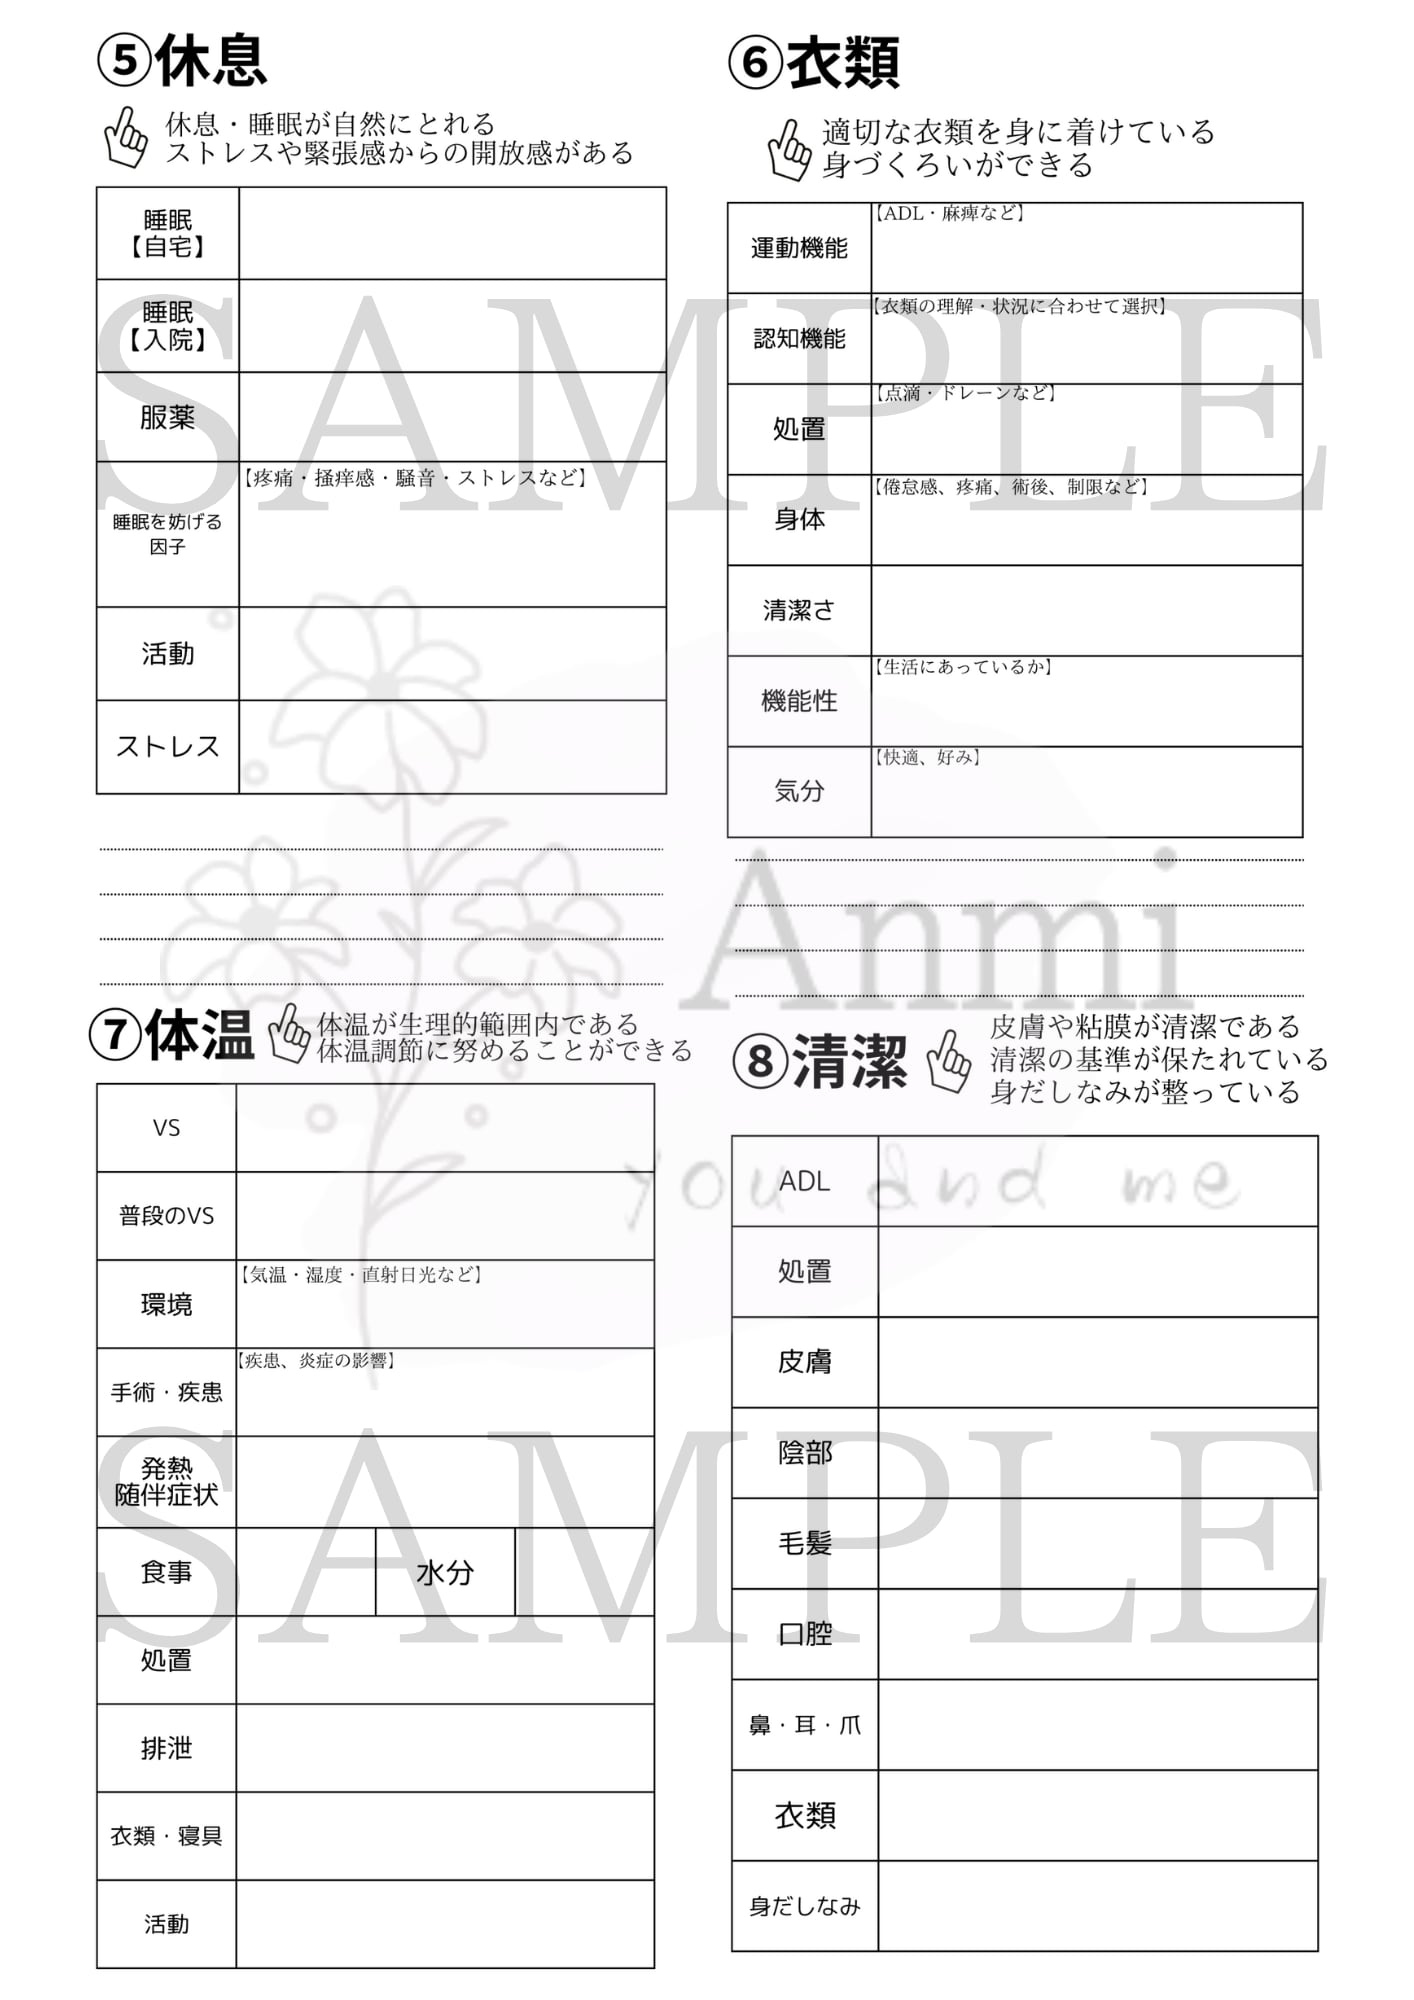 ⑤休息
休息・睡眠が自然にとれる
ストレスや緊張感からの開放感がある
睡眠
【自宅】
睡眠
【入院】
服薬
睡眠を妨げる
因子
【疼痛・掻痒感・騒音・ストレスなど】
活動
ストレス
⑥衣類
適切な衣類を身に着けている
身づくろいができる
運動機能
【ADL・麻痺など】
認知機能
【衣類の理解・状況に合わせて選択】
処置
【点滴・ドレーンなど】
身体
【倦怠感、疼痛、術後、制限など】
清潔さ
機能性
【生活にあっているか】
気分
【快適、好み】
⑦体温
体温が生理的範囲内である
体温調節に努めることができる
VS
普段のVS
環境
【気温・湿度・直射日光など】
手術・疾患
【疾患、炎症の影響】
発熱
随伴症状
食事
水分
処置
排泄
衣類・寝具
活動
⑧清潔
皮膚や粘膜が清潔である
清潔の基準が保たれている
身だしなみが整っている
ADL
処置
皮膚
陰部
毛髪
口腔
鼻・耳・爪
衣類
身だしなみ
SAMPLE
Anmi
you and me
SAMPLE